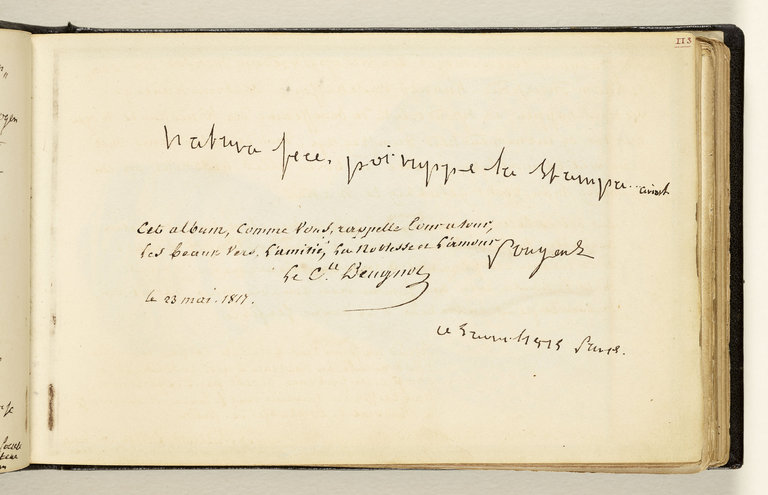 113
Natura fece, poi ruppe la stampa.. ariost
Cet album, comme vous, rappelle tour a tour,
Les beaux vers, l'amitié, la noblesse et l'amour
Le C.te Beugnot
le 23 mai. 1817.
ce 5 1815 Paris.